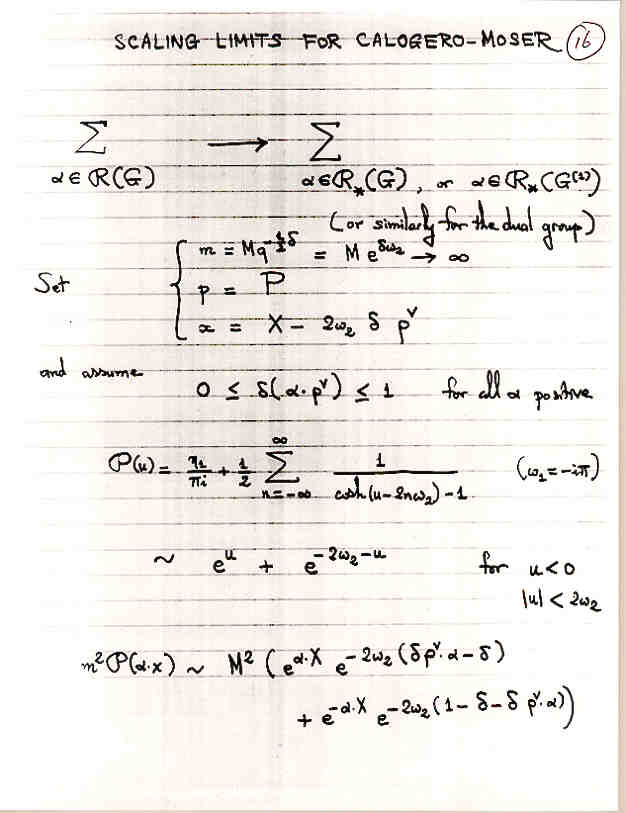 SCALING LIMITS FOR CALOGERO-MOSER 16
∑ → ∑
α∈R(G) α∈R_*(G), or α∈R_*(G^(1))
(or similarly for the dual group)
m = Mq^{-½δ} = M e^{δω₂} → ∞
Set p = P
x = X - 2ω₂ δ ρ^∨
and assume
0 ≤ δ(α·ρ^∨) ≤ 1 for all α positive
P(u) = η₁/πi + ½ ∑_{n=-∞}^{∞} 1/(cosh(u-2nω₂)-1) (ω₁=-iπ)
~ e^u + e^{-2ω₂-u} for u<0
|u| < 2ω₂
m²P(α·x) ~ M² (e^{α·X} e^{-2ω₂(δρ^∨·α-δ)}
+ e^{-α·X} e^{-2ω₂(1-δ-δρ^∨·α)})